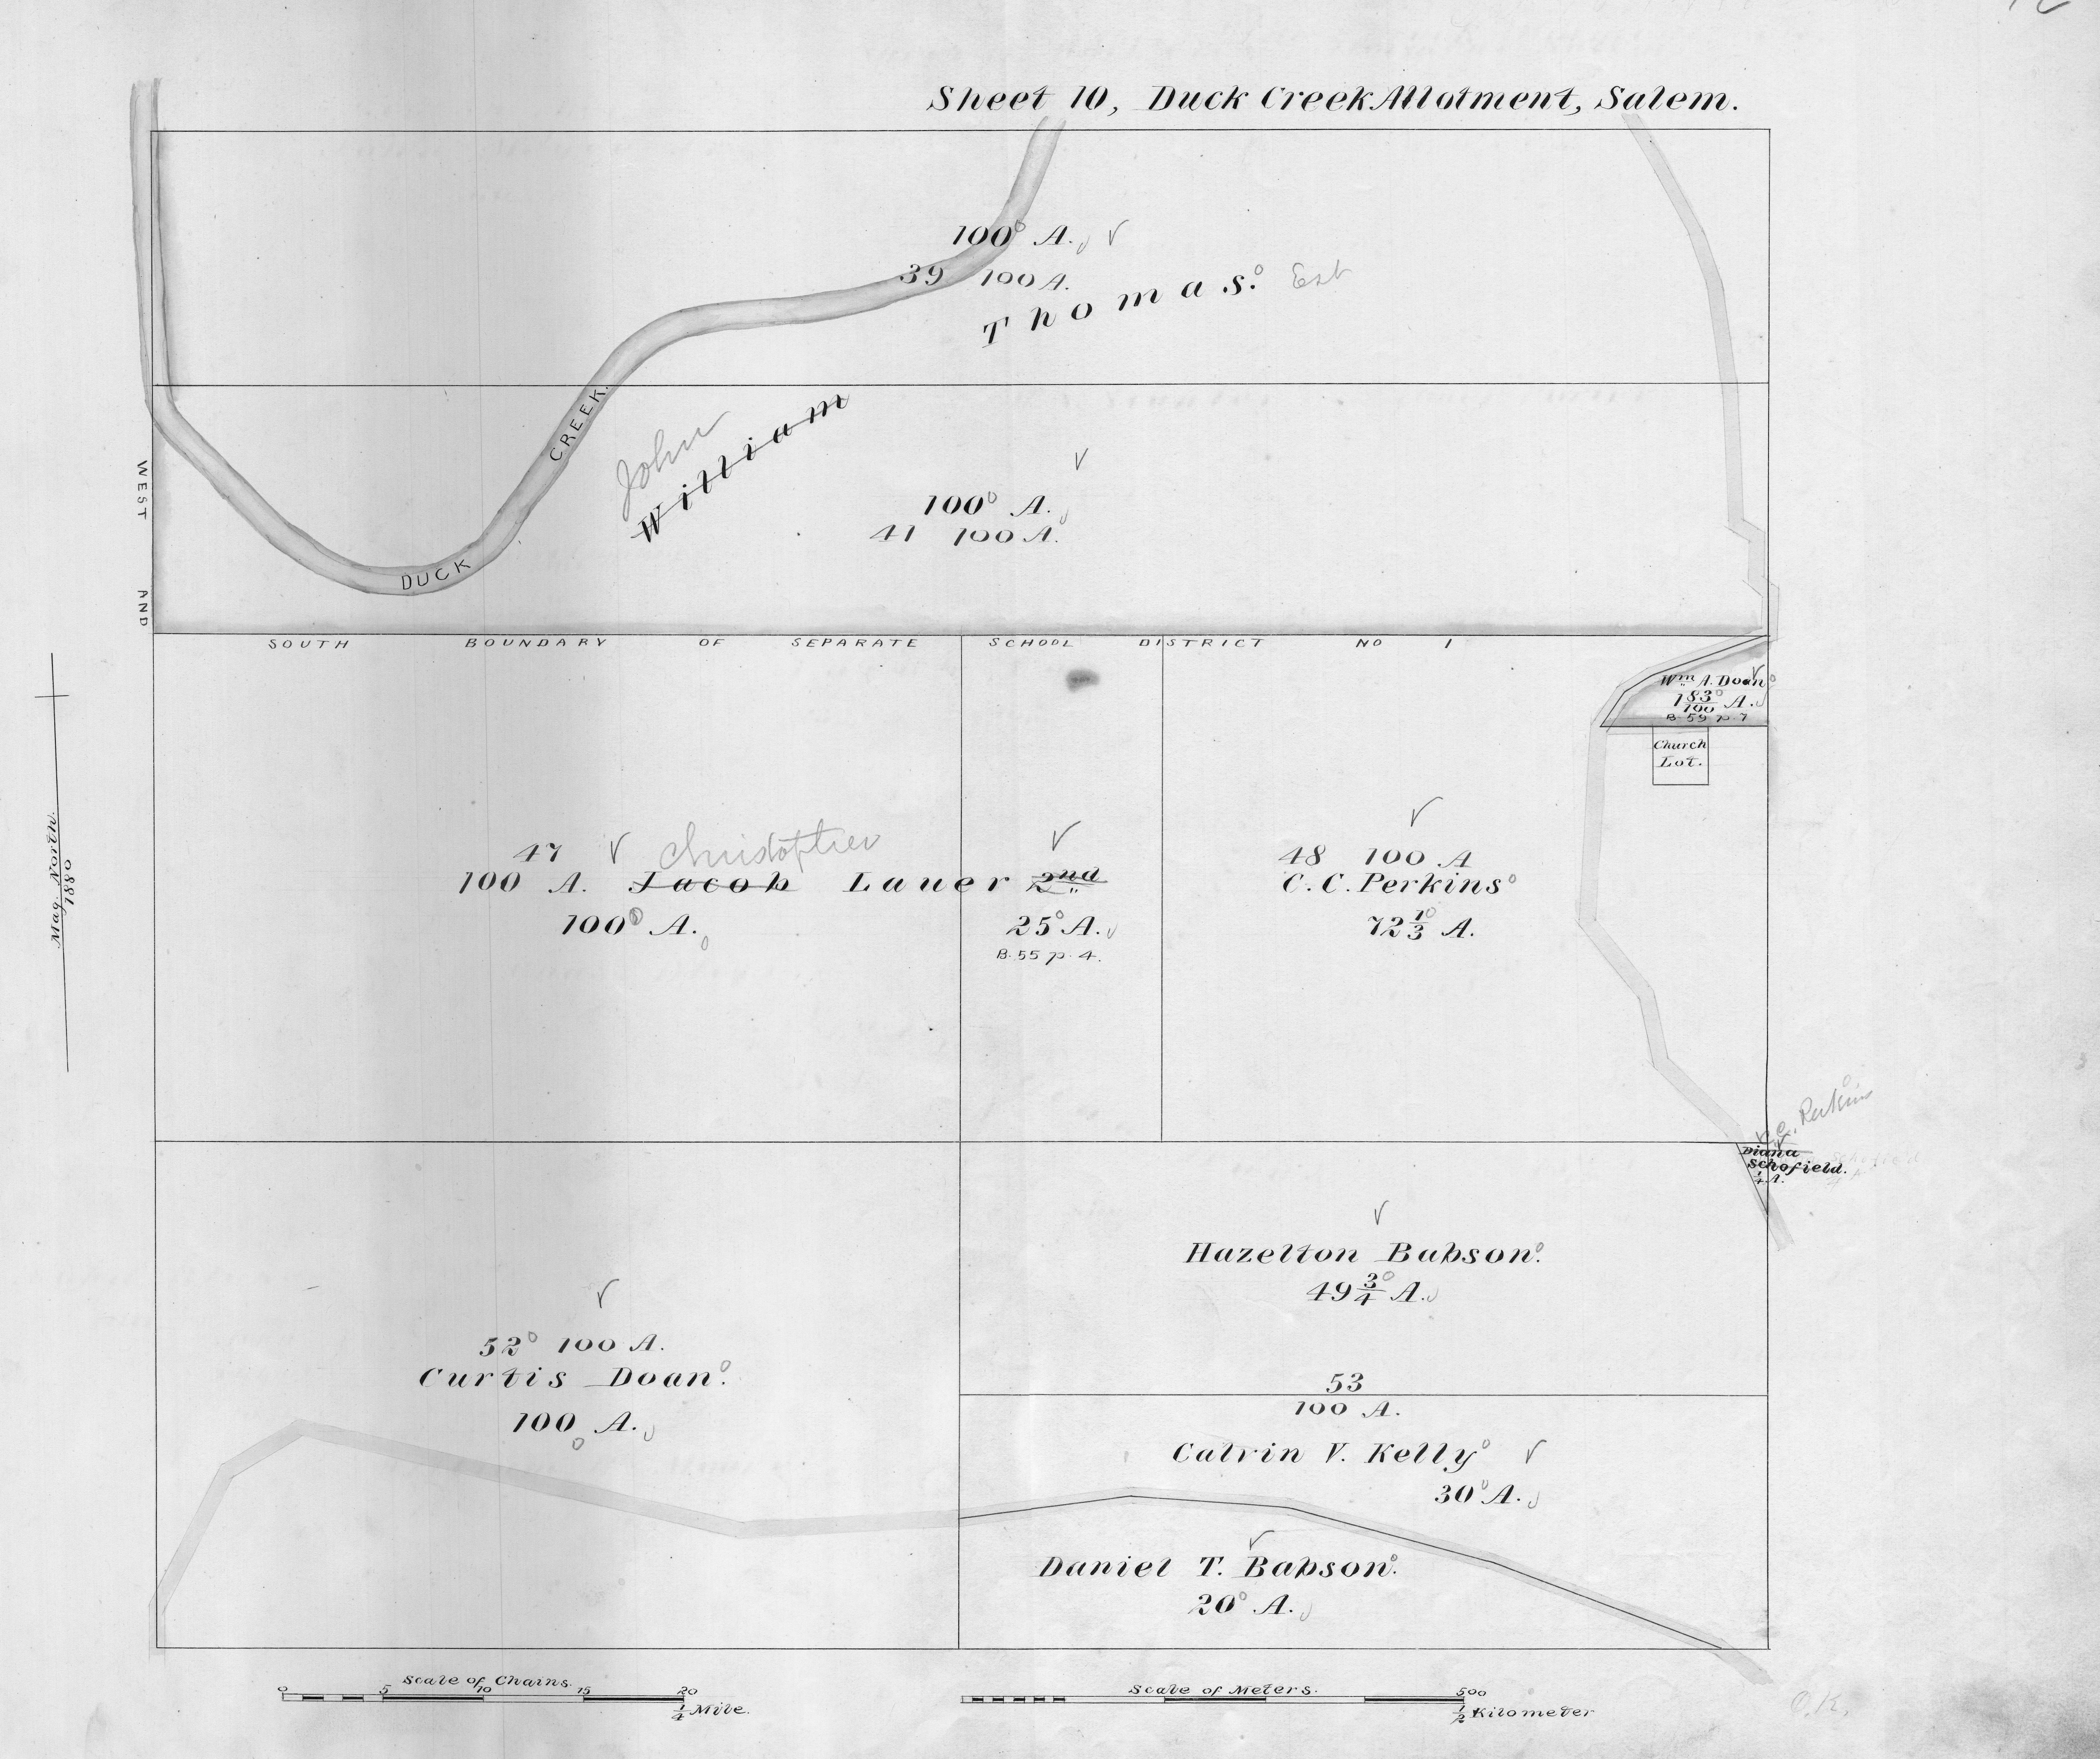 Sheet 10, Duck Creek Allotment, Salem.
100 A.
39 100 A.
Thomas. Est
John
William
100 A.
41 100 A.
DUCK CREEK.
WEST AND
SOUTH BOUNDARY OF SEPARATE SCHOOL DISTRICT NO 1
Wm A. Doan
1 83/100 A.
B. 59 p. 7
Church
Lot.
47 Christopher
100 A. Jacob Lauer 2nd
100 A.
25 A.
B. 55 p. 4.
48 100 A
C. C. Perkins
72 1/3 A.
Mag. North.
1880
C. C. Perkins
Diana
Schofield.
1/4 A.
Hazelton Babson.
49 3/4 A.
52 100 A.
Curtis Doan.
100 A.
53
100 A.
Calvin V. Kelly
30 A.
Daniel T. Babson.
20 A.
Scale of Chains.
0 5 10 15 20
1/4 Mile.
Scale of Meters.
500
1/2 Kilometer
O.K.